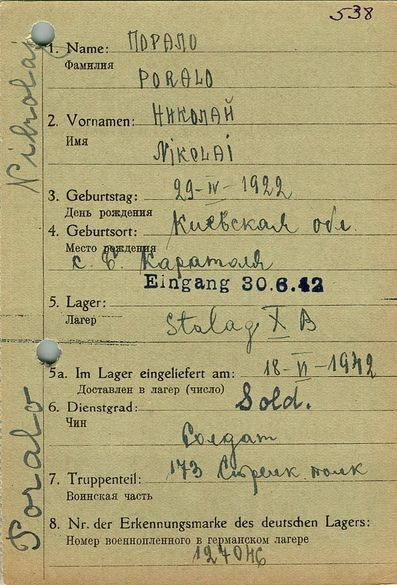 538
1. Name: ПОРАЛО
Фамилия
PORALO
2. Vornamen: НИКОЛАЙ
Имя
NIKOLAI
3. Geburtstag: 29-IV-1922
День рождения
4. Geburtsort: Киевская обл.
Место рождения
с. Б. Каратоля
Eingang 30.6.42
5. Lager:
Лагер
Stalag X B
5a. Im Lager eingeliefert am: 18-VI-1942
Доставлен в лагер (число)
6. Dienstgrad: Sold.
Чин
Солдат
7. Truppenteil: 173 Стрелк. полк
Воинская часть
8. Nr. der Erkennungsmarke des deutschen Lagers:
Номер военнопленного в германском лагере
127046
Poralo
Nikolaj